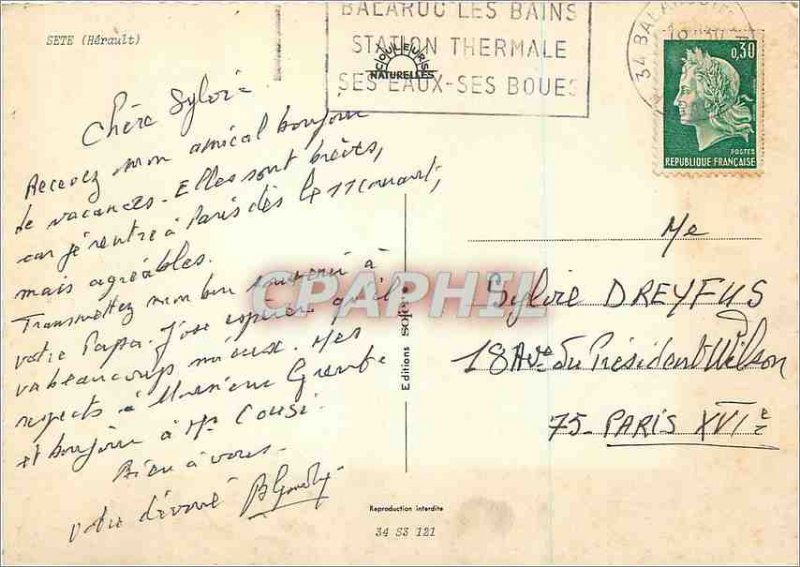 SETE (Hérault)
BALARUC LES BAINS
STATION THERMALE
SES EAUX-SES BOUES
COULEURS
NATURELLES
34 BALARUC
0,30
POSTES
REPUBLIQUE FRANÇAISE
Chère Sylvie
Recevez mon amical bonjour
de vacances. Elles sont brèves,
car je rentre à Paris dès le 11 courant,
mais agréables.
Transmettez mon bon souvenir à
votre Papa. J'ose espérer qu'il
va beaucoup mieux. Mes
respects à Monsieur
et bonjour à Mr Cousi.
Bien à vous.
votre dévoué
Editions
Me
Sylvie DREYFUS
18 Ave du Président Wilson
75 - PARIS XVIe
CPAPHIL
Reproduction interdite
34 S3 121